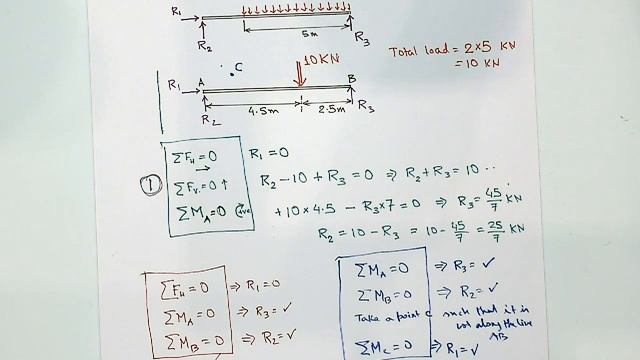 R₁
5m
R₂
R₃
Total load = 2×5 KN
= 10 KN
.C
10KN
R₁
A
B
4.5m
2.5m
R₂
R₃
①
ΣF_H = 0
R₁ = 0
ΣF_V = 0 ↑
R₂ − 10 + R₃ = 0 ⇒ R₂ + R₃ = 10 ..
ΣM_A = 0
+ 10 × 4.5 − R₃×7 = 0 ⇒ R₃ = 45/7 KN
R₂ = 10 − R₃ = 10 − 45/7 = 25/7 KN
ΣF_H = 0 ⇒ R₁ = 0
ΣM_A = 0 ⇒ R₃ = ✓
ΣM_B = 0 ⇒ R₂ = ✓
ΣM_A = 0 ⇒ R₃ = ✓
ΣM_B = 0 ⇒ R₂ = ✓
Take a point C such that it is
not along the line
AB
ΣM_C = 0 ⇒ R₁ = ✓